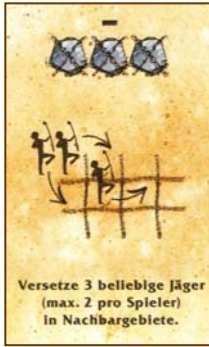 Versetze 3 beliebige Jäger
(max. 2 pro Spieler)
in Nachbargebiete.